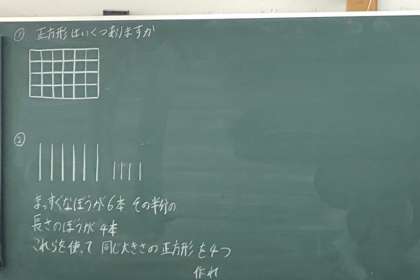 ① 正方形はいくつありますか
②
まっすぐなぼうが6本 その半分の
長さのぼうが4本
これらを使って 同じ大きさの正方形を4つ
作れ